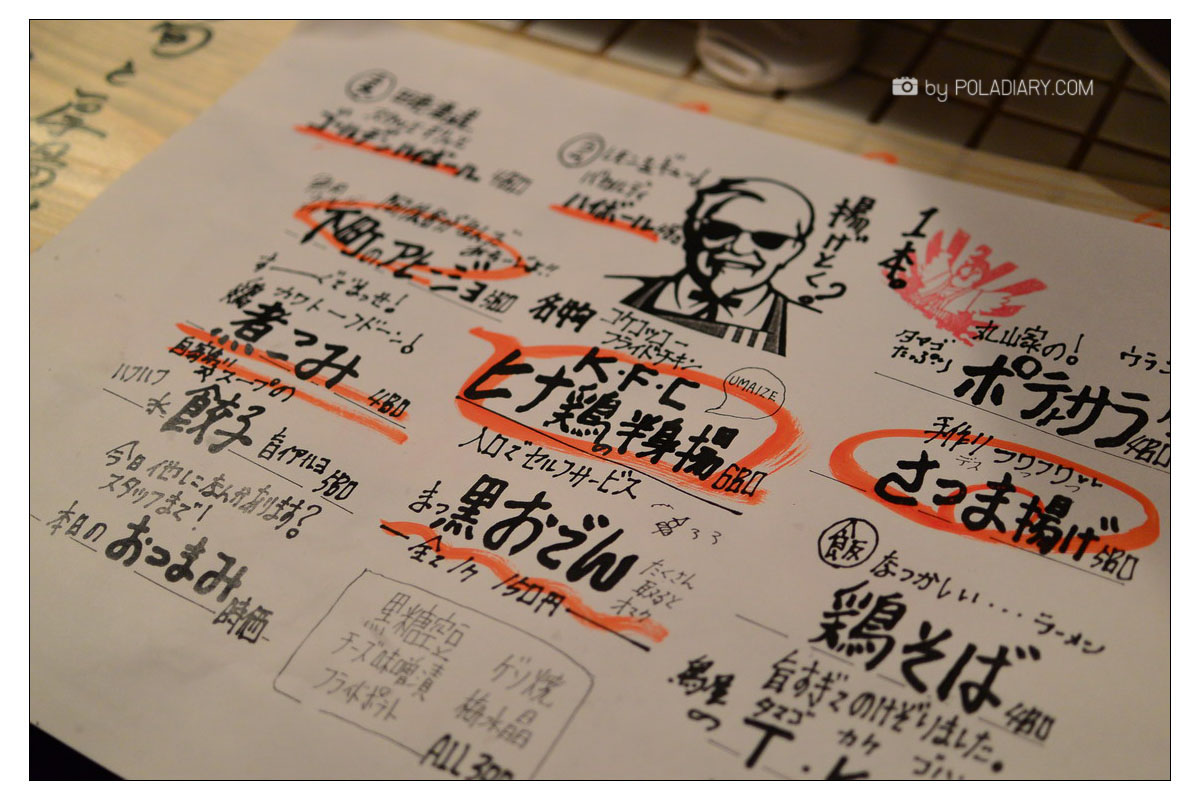 by POLADIARY.COM
旬と厚揚
ゴールデンハイボール 480
レモンギュー!
ハイボール
下町のアヒージョ 480
すーぐでまっせ!
カワトーフドーン!
煮こみ 480
自家製!!
スープの
ハフハフ
水餃子 旨イアルヨ 380
今日他になんかあります?
スタッフまで!
本日のおつまみ 時価
揚げとく?
1本。
名物
コケコッコー
フライドチキン
K・F・C
ヒナ鶏の半身揚 680
UMAIZE
入口でセルフサービス
まっ黒おでん
一全て1ケ 150円
たくさん
取ると
オマケ
黒糖
チーズ味噌漬
フライドポテト
ゲソ焼
梅水晶
ALL 300
丸山家の!
タマゴ
たっぷり
ポテサラ 480
手作り フワフワ
デス
さつま揚げ 580
飯 なつかしい...ラーメン
鶏そば 480
旨すぎてのけぞりました。
鶏屋の
タマゴ
カケ
T.K